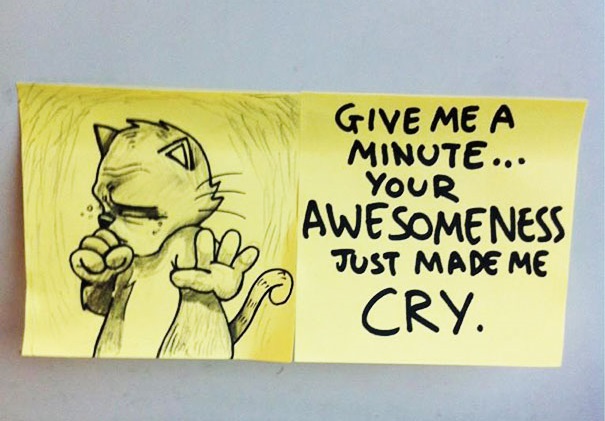 GIVE ME A
MINUTE...
YOUR
AWESOMENESS
JUST MADE ME
CRY.